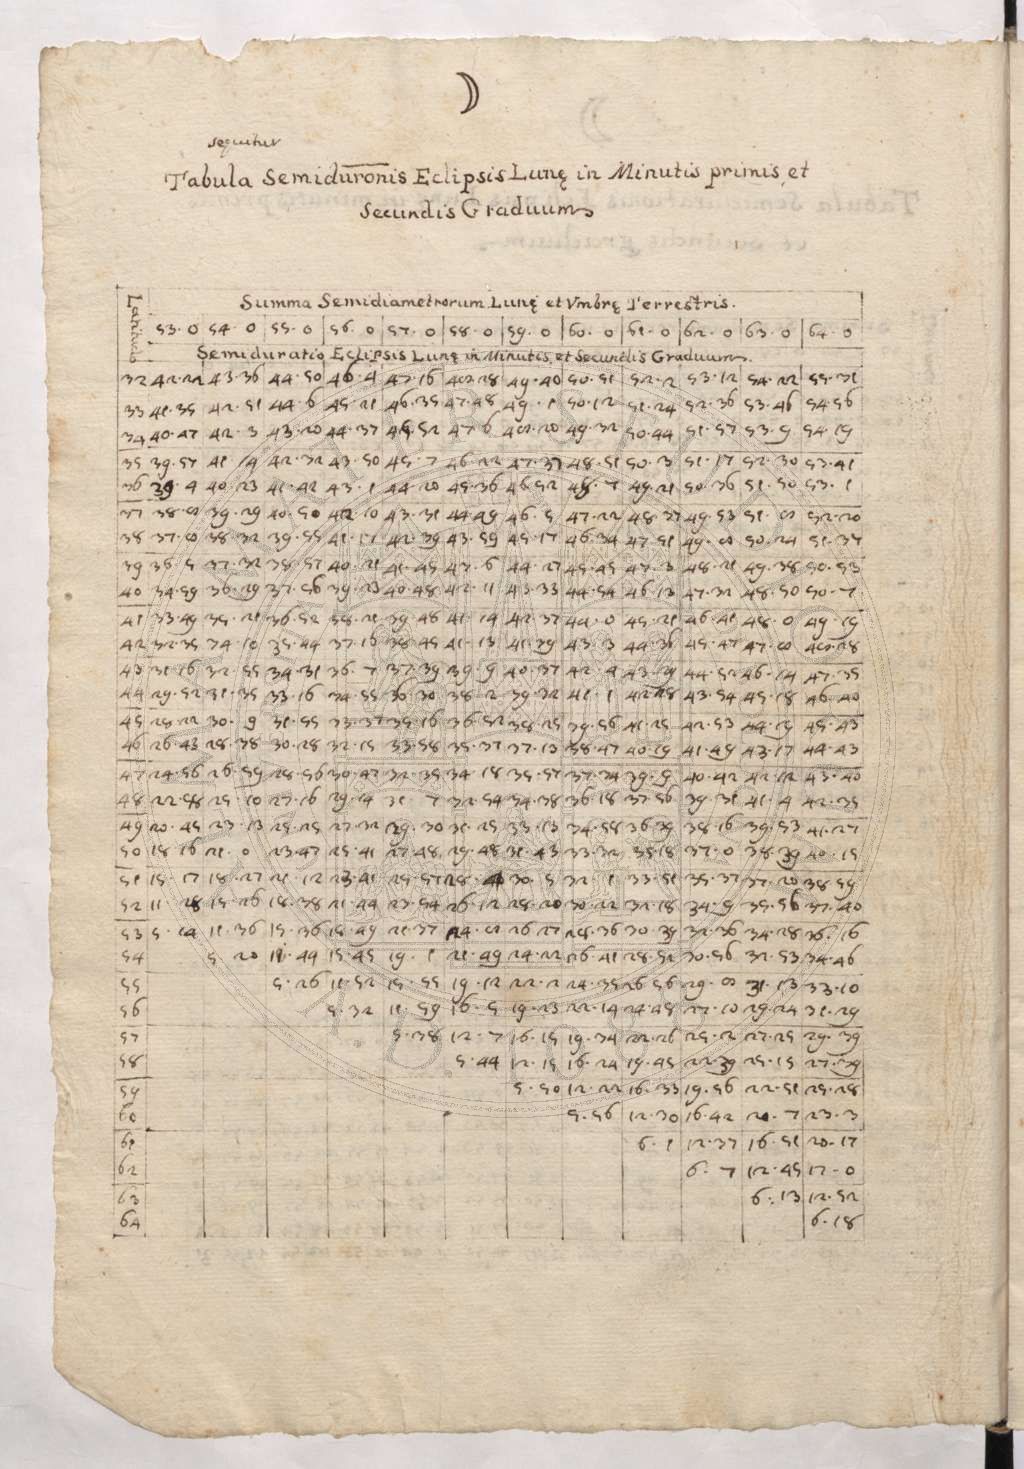 ☽
sequitur
Tabula Semiduronis Eclipsis Lunę in Minutis primis, et
Secundis Graduum
Latitudo
Summa Semidiametrorum Lunę et Vmbrę Terrestris.
53·0 54·0 55·0 56·0 57·0 58·0 59·0 60·0 61·0 62·0 63·0 64·0
Semiduratio Eclipsis Lunę in Minutis, et Secundis Graduum.
32 42·22 43·36 44·50 46·4 47·16 48·28 49·40 50·51 52·2 53·12 54·22 55·31
33 41·35 42·51 44·6 45·21 46·35 47·48 49·1 50·12 51·24 52·36 53·46 54·56
34 40·47 42·3 43·20 44·37 45·52 47·6 48·20 49·32 50·44 51·57 53·9 54·19
35 39·57 41·14 42·32 43·50 45·7 46·22 47·37 48·51 50·3 51·17 52·30 53·41
36 39·4 40·23 41·42 43·1 44·20 45·36 46·52 48·7 49·21 50·36 51·50 53·1
37 38·8 39·29 40·50 42·10 43·31 44·49 46·5 47·22 48·37 49·53 51·8 52·20
38 37·8 38·32 39·55 41·17 42·39 43·59 45·17 46·34 47·51 49·8 50·24 51·37
39 36·5 37·32 38·57 40·21 41·45 43·6 44·27 45·45 47·3 48·21 49·38 50·53
40 34·59 36·29 37·56 39·23 40·48 42·11 43·33 44·54 46·13 47·32 48·50 50·7
41 33·49 35·21 36·52 38·21 39·48 41·14 42·37 44·0 45·21 46·41 48·0 49·19
42 32·35 34·10 35·44 37·16 38·45 41·13 41·39 43·3 44·26 45·47 47·8 48·28
43 31·16 32·55 34·31 36·7 37·39 39·9 40·37 42·4 43·29 44·52 46·14 47·35
44 29·52 31·35 33·16 34·55 36·30 38·2 39·32 41·1 42·28 43·54 45·18 46·40
45 28·22 30·9 31·55 33·37 35·16 36·52 38·25 39·56 41·25 42·53 44·19 45·43
46 26·43 28·38 30·28 32·15 33·58 35·37 37·13 38·47 40·19 41·49 43·17 44·43
47 24·56 26·59 28·56 30·47 32·35 34·18 35·57 37·34 39·9 40·42 42·12 43·40
48 22·58 25·10 27·16 29·14 31·7 32·54 34·38 36·18 37·56 39·31 41·4 42·35
49 20·45 23·13 25·25 27·32 29·30 31·25 33·13 34·58 36·39 38·16 39·53 41·27
50 18·16 21·0 23·47 25·41 27·48 29·48 31·43 33·32 35·18 37·0 38·39 40·15
51 15·17 18·27 21·12 23·41 25·57 28·4 30·5 32·1 33·51 35·37 37·20 38·59
52 11·28 15·26 18·38 21·24 23·54 26·12 28·20 30·22 32·18 34·9 35·56 37·40
53 5·14 11·36 15·36 18·49 21·37 24·8 26·27 28·36 30·39 32·36 34·28 36·16
54 5·20 11·44 15·45 19·1 21·49 24·22 26·41 28·52 30·56 32·53 34·46
55 5·26 11·52 15·55 19·12 22·2 24·35 26·56 29·8 31·13 33·10
56 5·32 11·59 16·5 19·23 22·14 24·48 27·10 29·24 31·29
57 5·38 12·7 16·15 19·34 22·26 25·2 27·25 29·39
58 5·44 12·15 16·24 19·45 22·39 25·15 27·39
59 5·50 12·22 16·33 19·56 22·51 25·28
60 5·56 12·30 16·42 20·7 23·3
61 6·1 12·37 16·51 20·17
62 6·7 12·45 17·0
63 6·13 12·52
64 6·18